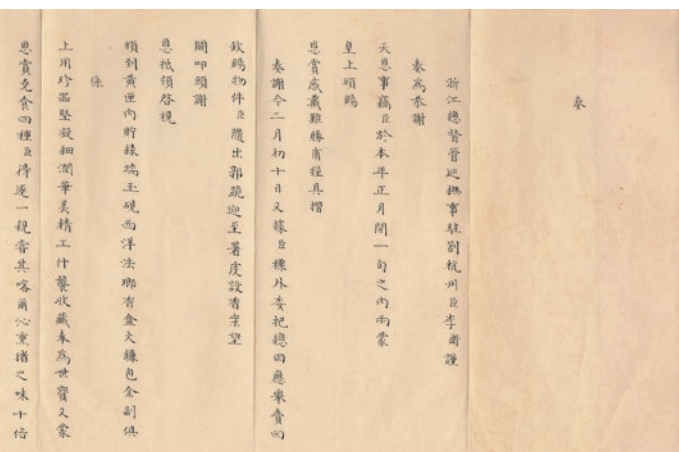 奏
浙江總督管巡撫事駐劄杭州臣李衛謹
奏為恭謝
天恩事竊臣於本年正月間一旬之內兩蒙
皇上頒賜
恩賞感戴難勝甫經具摺
奏謝今二月初十日又據臣標外委把總田應舉賫回
欽賜物件臣隨出郭跪迎至署虔設香案望
闕叩頭謝
恩祗領啓視
頒到黃匣內貯綠端玉硯西洋法瑯香盒文 包全副俱
係
上用珍器堅凝細潤華美精工什襲收藏奉為世寶又蒙
恩賞克食四種臣得逐一親嘗其喀爾沁熏猪之味十倍